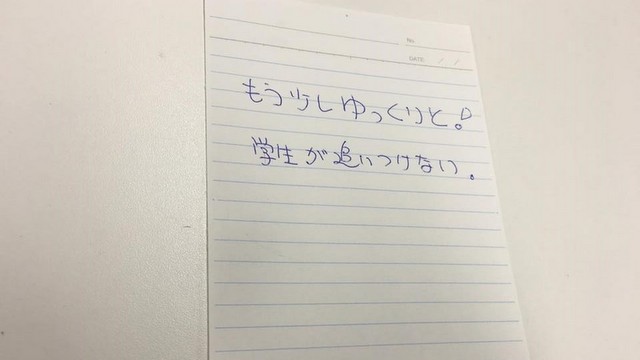 No.
DATE / /
もう少しゆっくりと!
学生が追いつけない。